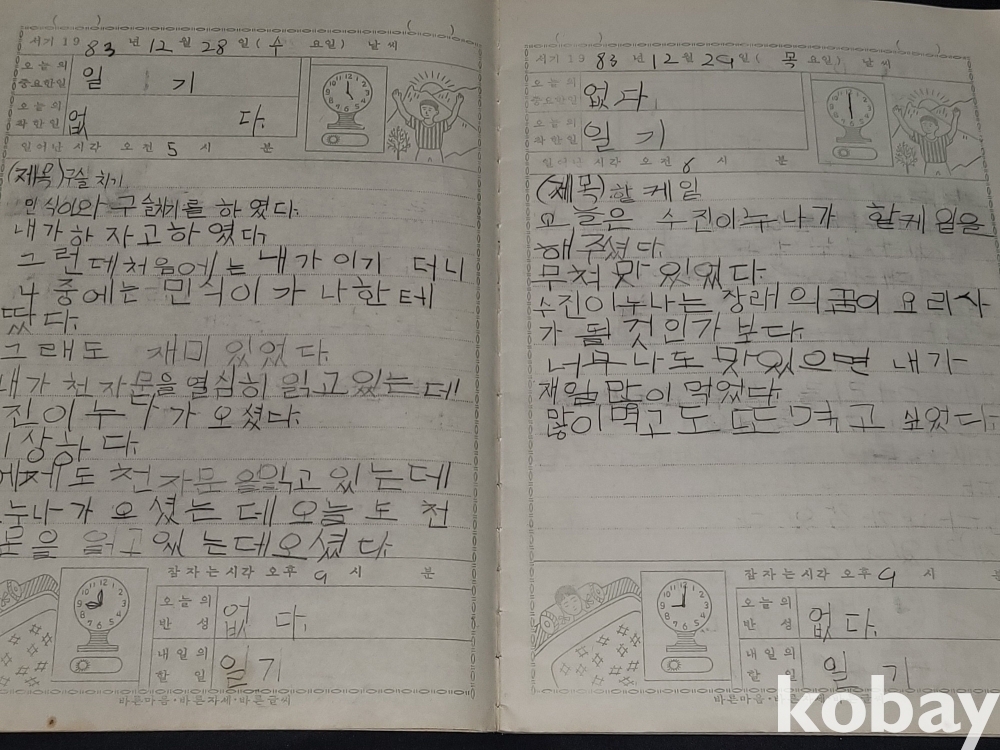 (          )
서기 19 83 년 12 월 28 일 ( 수 요일 ) 날씨
오늘의 중요한일 일 기
오늘의 착한일 없 다.
일어난 시각 오전 5 시 분
(제목) 구슬치기
민식이와 구슬치기를 하였다.
내가 하자고 하였다.
그런데 처음에는 내가 이기 더니
나중에는 민식이가 나한테
땄다.
그래도 재미있었다.
내가 천자문을 열심히 읽고 있는데
진이 누나가 오셨다.
이상하다.
에저도 천자문을 읽고 있는데
누나가 오셨는데 오늘도 천
문을 읽고 있는데 오셨다.
잠자는 시각 오후 9 시 분
오늘의 반성 없 다.
내일의 할일 일 기
바른마음·바른자세·바른글씨
(          )
서기 19 83 년 12 월 29 일 ( 목 요일 ) 날씨
오늘의 중요한일 없다.
오늘의 착한일 일 기
일어난 시각 오전 6 시 분
(제목) 핱케잌
오늘은 수진이누나가 핱케잌을
해주셨다.
무척 맛있었다.
수진이누나는 장래의 꿈이 요리사
가 될 것인가 보다.
너무나도 맛있으면 내가
재일 많이 먹었다.
많이 먹고도 또 먹고 싶었다.
잠자는 시각 오후 9 시 분
오늘의 반성 없다.
내일의 할일 일 기
바른마음·바른
kobay